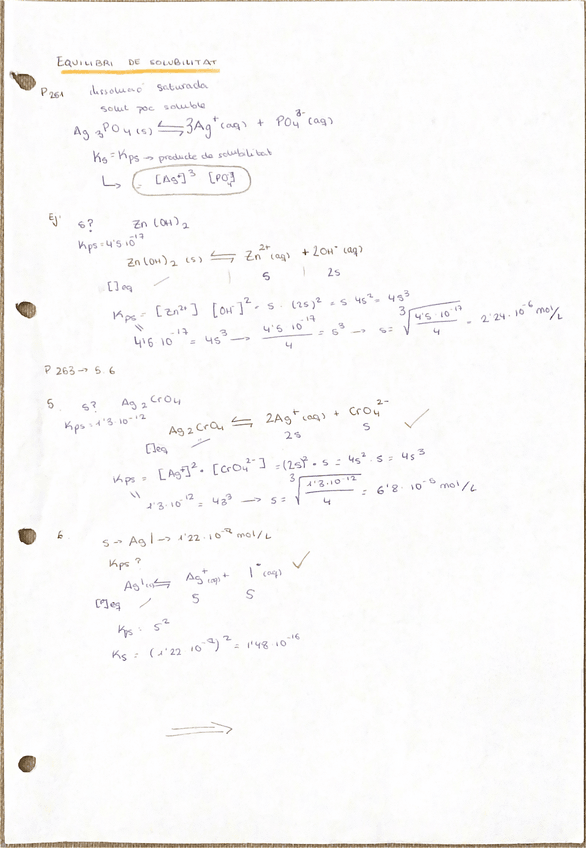 EQUILIBRI DE SOLUBILITAT
P261 dissolució saturada
solut poc soluble
Ag3PO4 (s) ⇌ 3Ag⁺(aq) + PO4³⁻ (aq)
Ks = Kps → producte de solubilitat
↳ = [Ag⁺]³ [PO4³⁻]
Ej: s? Zn(OH)2
Kps = 4'5 10⁻¹⁷
Zn(OH)2 (s) ⇌ Zn²⁺(aq) + 2OH⁻(aq)
[]eq — s 2s
Kps = [Zn²⁺] [OH⁻]² = s · (2s)² = s 4s² = 4s³
4'5 10⁻¹⁷ = 4s³ → 4'5 10⁻¹⁷/4 = s³ → s = ∛(4'5 · 10⁻¹⁷/4) = 2'24 · 10⁻⁶ mol/L
P 263 → 5. 6
5. s? Ag2CrO4
Kps = 1'3 · 10⁻¹²
Ag2CrO4 ⇌ 2Ag⁺(aq) + CrO4²⁻ ✓
[]eq — 2s s
Kps = [Ag⁺]² · [CrO4²⁻] = (2s)² · s = 4s² · s = 4s³
1'3 · 10⁻¹² = 4s³ → s = ∛(1'3 · 10⁻¹²/4) = 6'8 · 10⁻⁵ mol/L
6. s → AgI → 1'22 · 10⁻⁸ mol/L
Kps?
AgI(s) ⇌ Ag⁺(aq) + I⁻(aq) ✓
[]eq — s s
Kps = s²
Ks = (1'22 10⁻⁸)² = 1'48 · 10⁻¹⁶
⇒